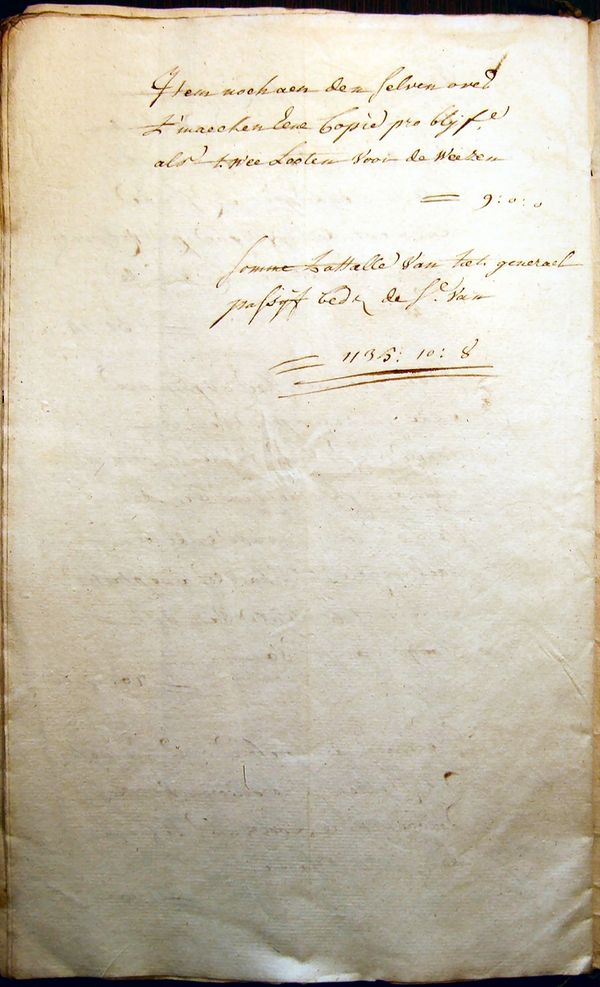 Item noch aen den selven over
t'maecken Eene Copie pro blyf
als twee Looten voor de Weezen
= 9:0:0
Somme tottalle van het generael
passijf bedr de Sr. van
= 1135: 10: 8